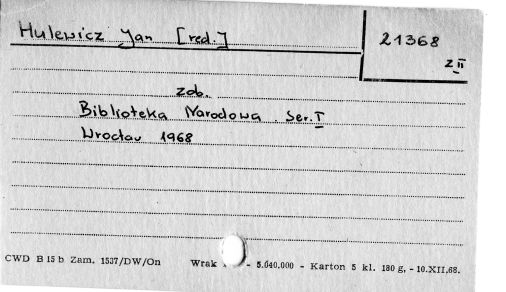 Hulewicz Jan [red.]
21368
z II
zob.
Biblioteka Narodowa. Ser. I
Wrocław 1968
CWD B 15 b Zam. 1537/DW/On Wrak - 5.040.000 - Karton 5 kl. 180 g, - 10.XII.68.